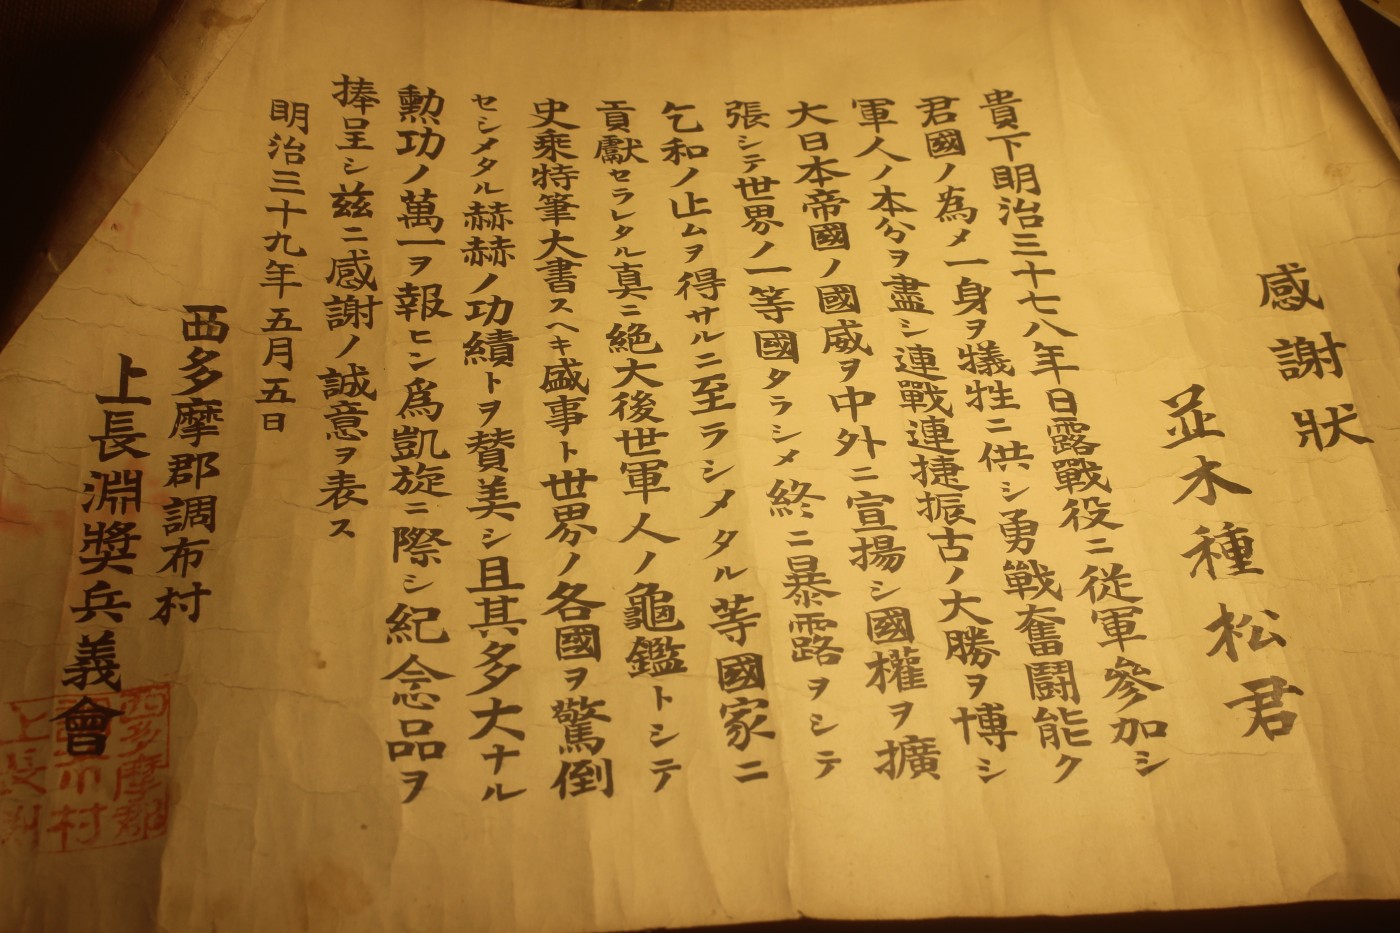 感謝状
並木種松君
貴下明治三十七八年日露戰役ニ従軍參加シ
君國ノ為メ一身ヲ犠牲ニ供シ勇戰奮闘能ク
軍人ノ本分ヲ盡シ連戰連捷振古ノ大勝ヲ博シ
大日本帝國ノ國威ヲ中外ニ宣揚シ國權ヲ擴
張シテ世界ノ一等國タラシメ終ニ暴露ヲシテ
乞和ノ止ムヲ得サルニ至ラシメタル等國家ニ
貢獻セラレタル真ニ絶大後世軍人ノ龜鑑トシテ
史乘特筆大書スヘキ盛事ト世界ノ各國ヲ驚倒
セシメタル赫赫ノ功績トヲ賛美シ且其多大ナル
勲功ノ萬一ヲ報ヒン爲凱旋ニ際シ紀念品ヲ
捧呈シ茲ニ感謝ノ誠意ヲ表ス
明治三十九年五月五日
西多摩郡調布村
上長淵奬兵義會
西多摩郡
調布村
上長淵